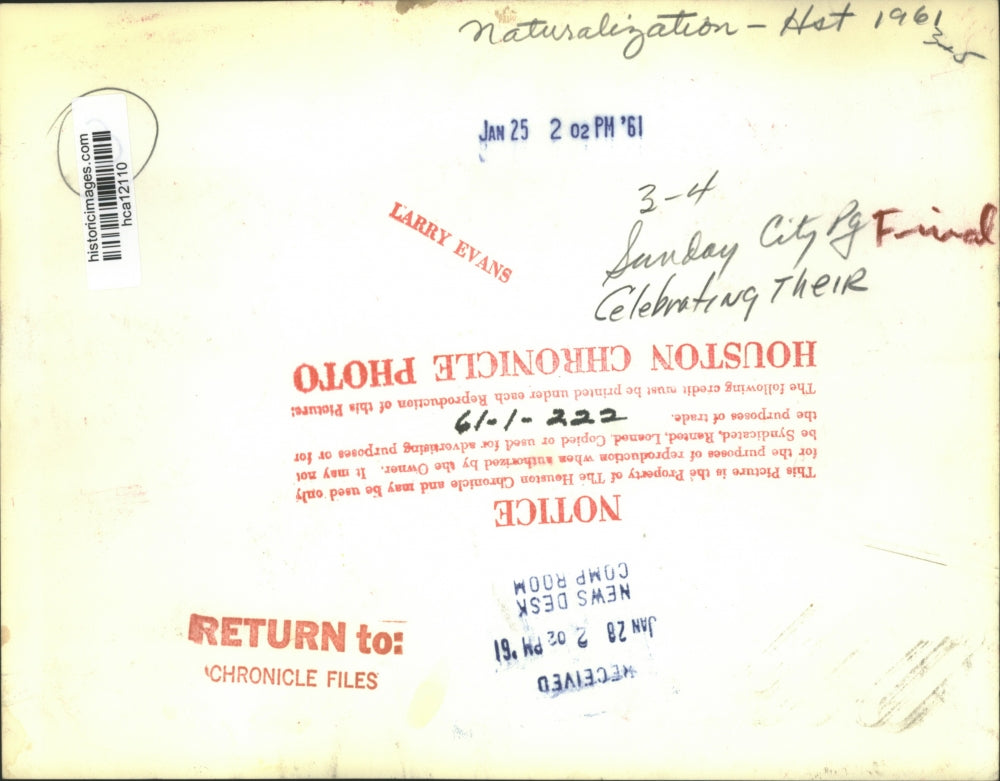 Naturalization - Hst 1961
3-5
JAN 25 2 02 PM '61
historicimages.com
hca12110
LARRY EVANS
3-4
Sunday City Pg Final
Celebrating Their
NOTICE
This Picture is the Property of The Houston Chronicle and may be used only
for the purposes of reproduction when authorized by the Owner. It may not
be Syndicated, Rented, Loaned, Copied or used for advertising purposes or for
the purposes of trade.
61-1-222
The following credit must be printed under each Reproduction of this Picture:
HOUSTON CHRONICLE PHOTO
RECEIVED
JAN 28 2 02 PM '61
NEWS DESK
COMP ROOM
RETURN to:
CHRONICLE FILES